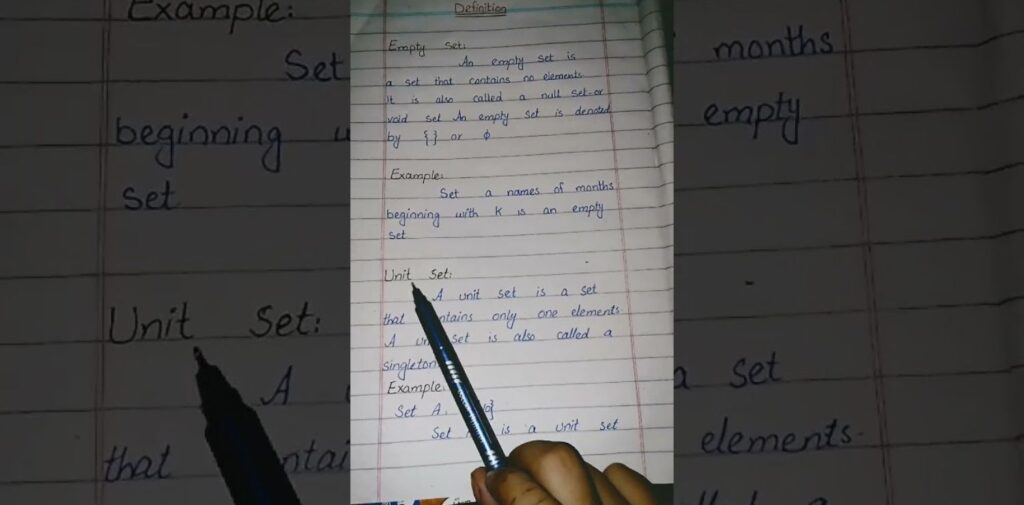 Definition
Empty Set:
An empty set is
a set that contains no elements.
It is also called a null set or
void set An empty set is denoted
by { } or ϕ
Example:
Set a names of months
beginning with K is an empty
set
Unit Set:
A unit set is a set
that ntains only one elements
A un set is also called a
singleton
Example
Set A
Set is a unit set